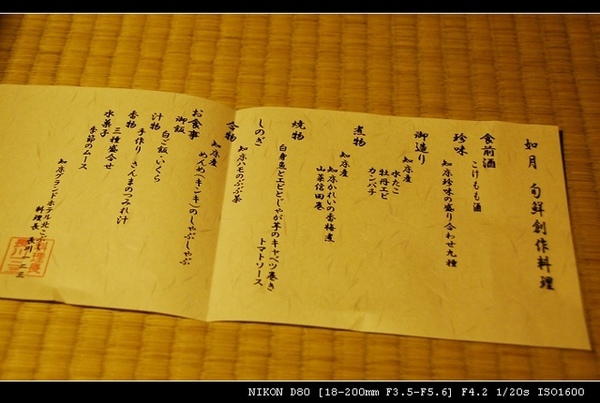 如月 旬鮮創作料理
食前酒
こけもも酒
珍味
知床珍味の盛り合わせ九種
御造り
知床産
水たこ
牡丹エビ
カンパチ
煮物
知床産
知床かれいの香梅煮
山菜信田巻
焼物
白身魚とエビとじゃが芋のキャベツ巻き
トマトソース
しのぎ
知床ハモのぶぶ茶
合物
知床産
めんめ(キンキ)のしゃぶしゃぶ
お食事
御飯
白ご飯・いくら
汁物
手作り さんまのつみれ汁
香物
三種盛合せ
水菓子
季節のムース
知床グランドホテル北こぶし
料理長
長川 一二三
NIKON D80 [18-200mm F3.5-F5.6] F4.2 1/20s ISO1600